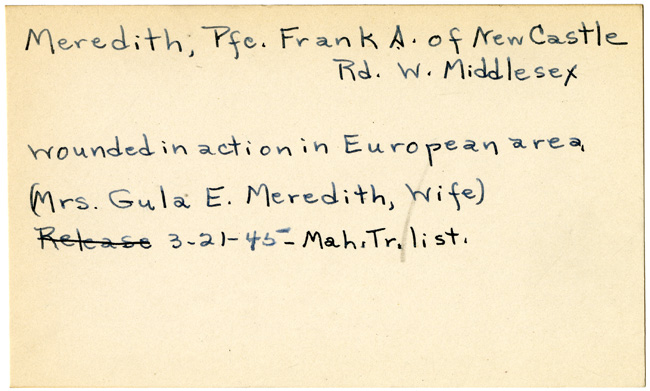 Meredith, Pfc. Frank A. of New Castle
Rd. W. Middlesex
wounded in action in European area,
(Mrs. Gula E. Meredith, Wife)
Release 3-21-45- Mah. Tr. list.